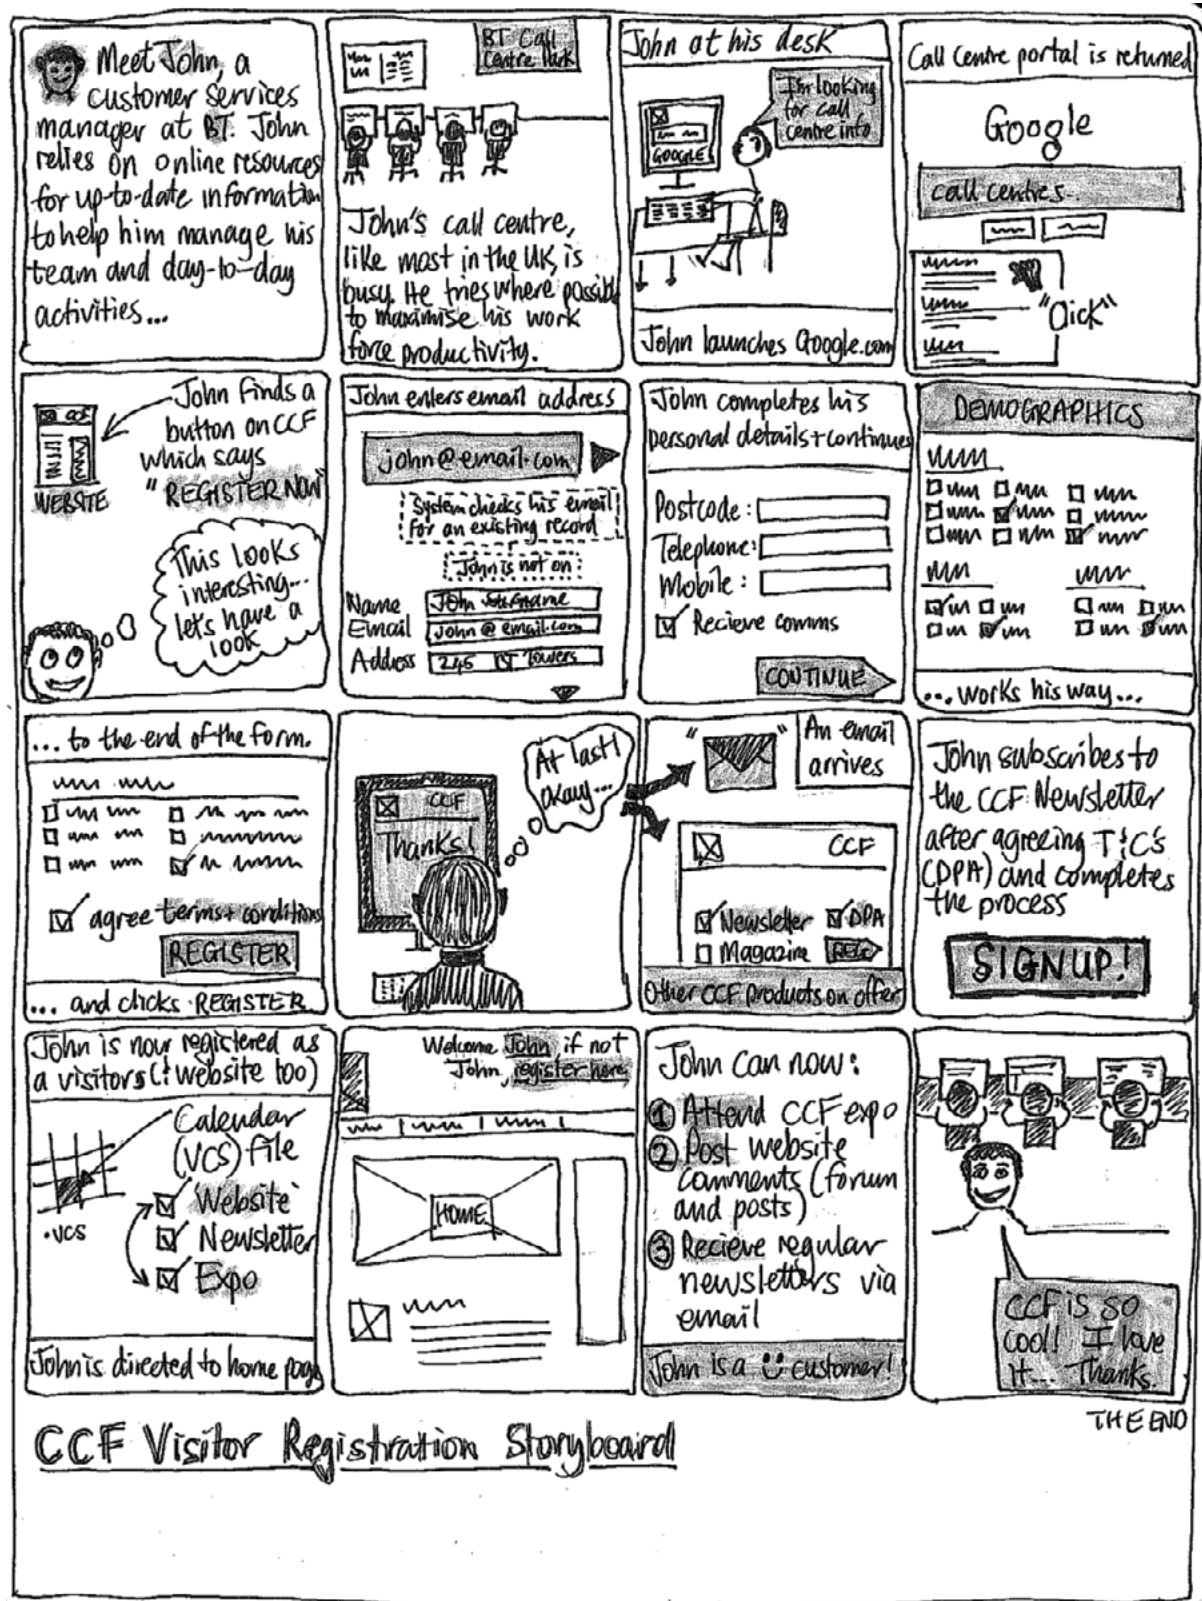 Meet John, a
customer services
manager at BT. John
relies on online resources
for up-to-date information
to help him manage his
team and day-to-day
activities...
BT Call
Centre Park
John's call centre,
like most in the UK, is
busy. He tries where possible
to maximise his work
force productivity.
John at his desk
I'm looking
for call
centre info
GOOGLE
John launches Google.com
Call Centre portal is returned
Google
call centres..
"Click"
John finds a
button on CCF
which says
"REGISTER NOW"
WEBSITE
This looks
interesting...
let's have a
look
John enters email address
john@email.com
System checks his email
for an existing record
John is not on
Name John Surname
Email John@email.com
Address 245 BT Towers
John completes his
personal details + continues
Postcode:
Telephone:
Mobile:
Recieve comms
CONTINUE
DEMOGRAPHICS
...works his way...
...to the end of the form.
agree terms + conditions
REGISTER
...and clicks REGISTER
At last!
okay...
CCF
Thanks!
An email
arrives
CCF
Newsletter DPA
Magazine
Other CCF products on offer
John subscribes to
the CCF Newsletter
after agreeing T&C's
(DPA) and completes
the process
SIGNUP!
John is now registered as
a visitors (& website too)
Calendar
(VCS) file
.vcs
Website
Newsletter
Expo
John is directed to home page
Welcome John, if not
John, register here
HOME
John can now:
1 Attend CCF expo
2 Post website
comments (forum
and posts)
3 Recieve regular
newsletters via
email
John is a customer!
CCF is so
cool! I love
it... Thanks.
THE END
CCF Visitor Registration Storyboard